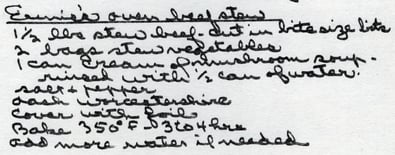 Ernie's oven beef stew
1 1/2 lbs stew beef - cut in bite size bits
2 bags stew vegetables
1 can cream of mushroom soup -
rinsed with 1/2 can of water.
salt + pepper
dash worcestershire
cover with foil
Bake 350° F - 3 to 4 hrs
add more water if needed